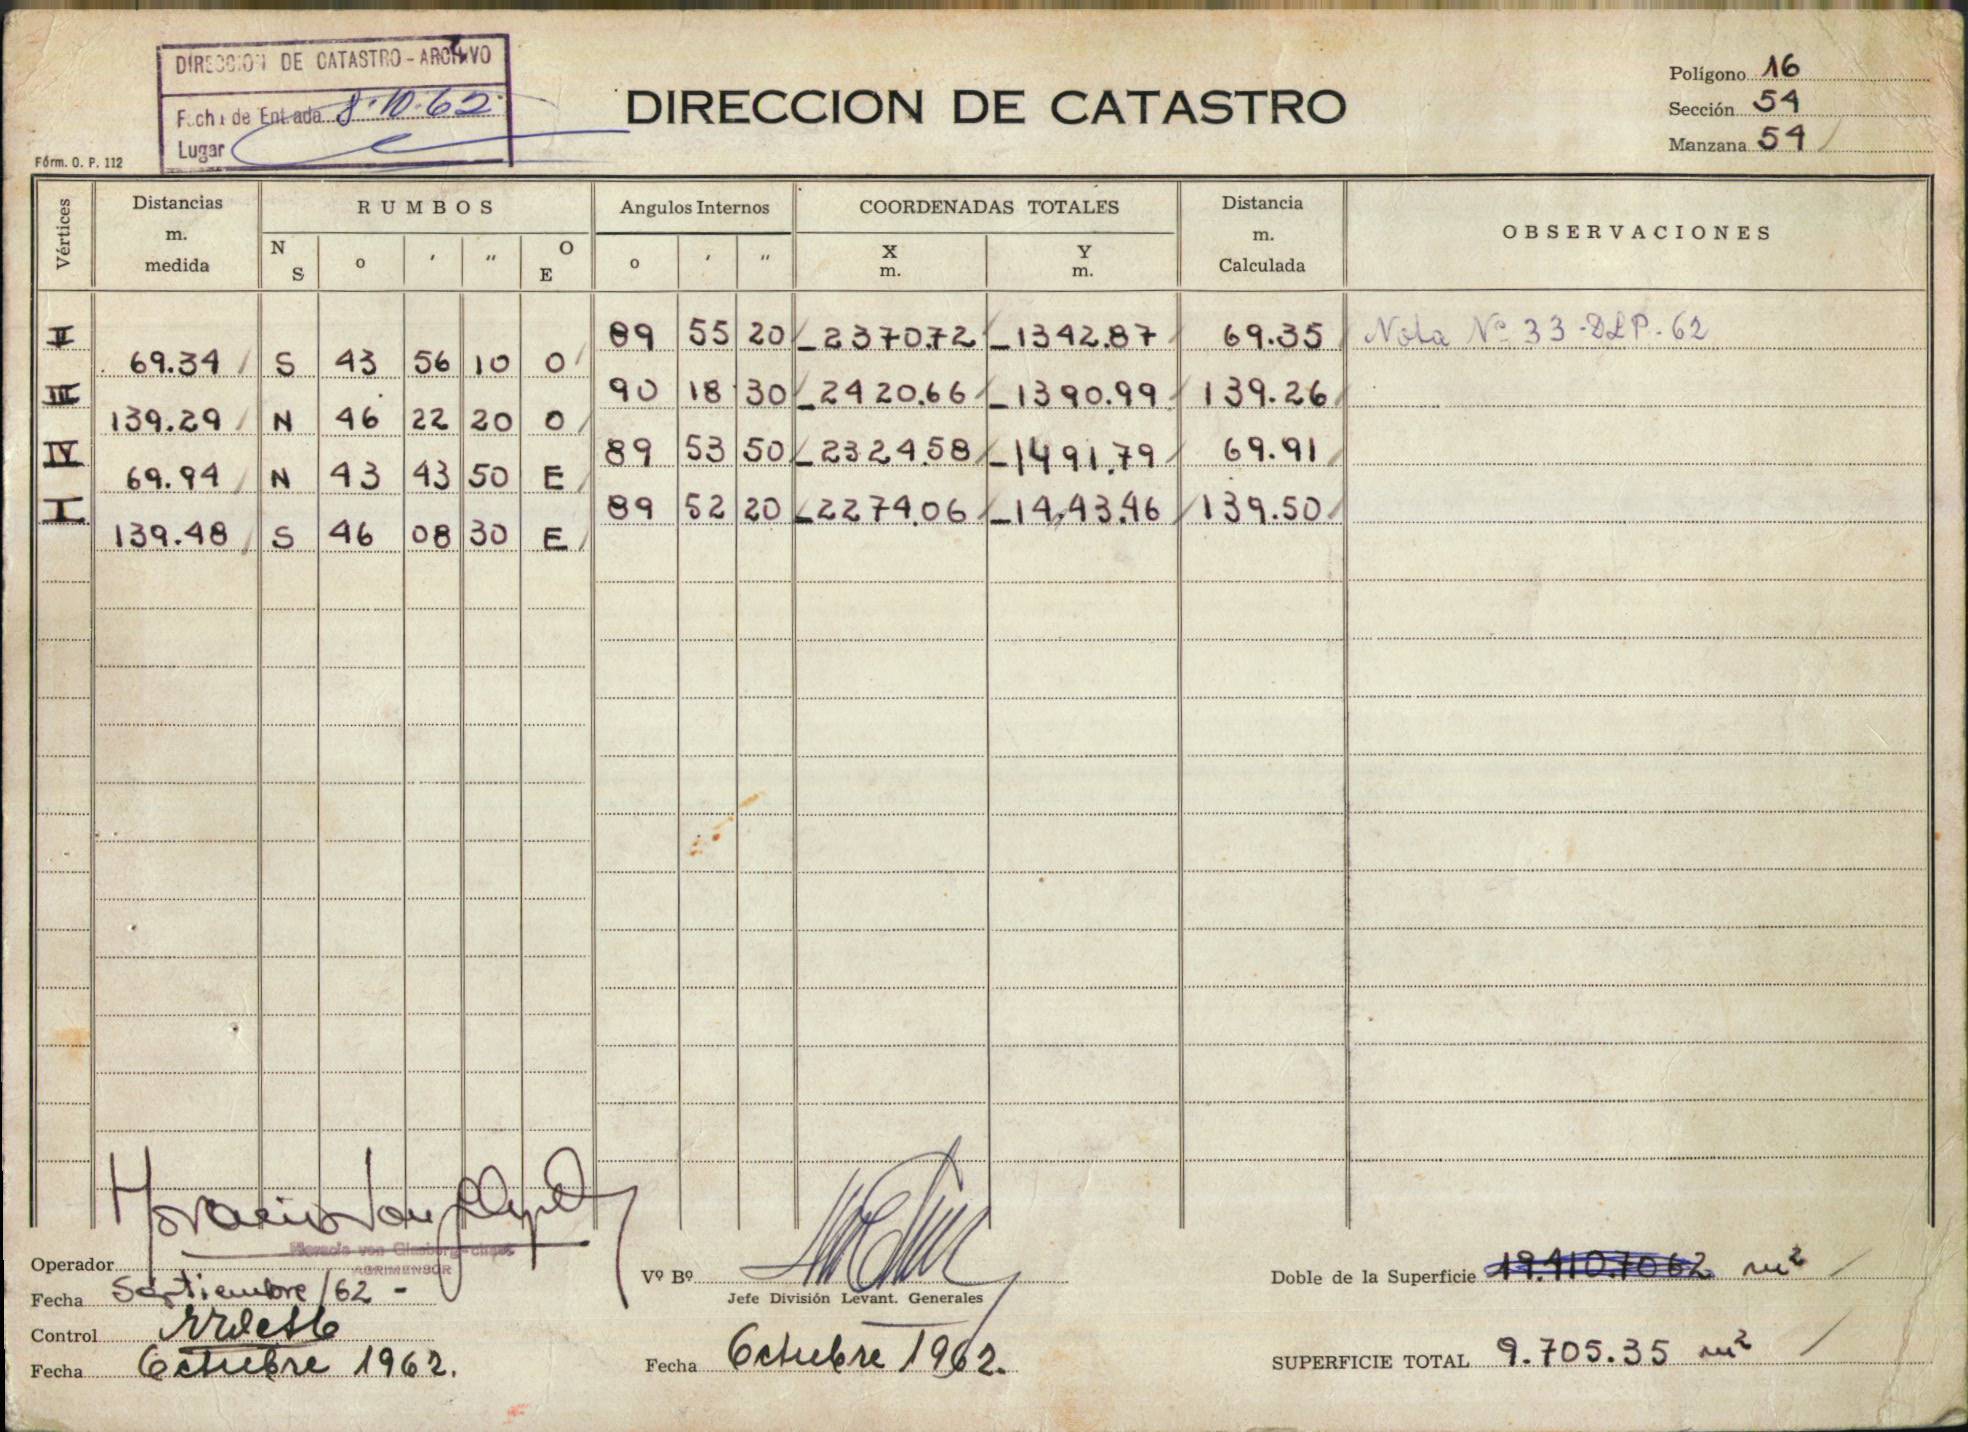 DIRECCION DE CATASTRO - ARCHIVO
Fecha de Entrada 8.10.62
Lugar
Fórm. O. P. 112
DIRECCION DE CATASTRO
Polígono 16
Sección 54
Manzana 54
Vértices Distancias m. medida RUMBOS Angulos Internos COORDENADAS TOTALES Distancia m. Calculada OBSERVACIONES
N S o ' " O E o ' " X m. Y m.
II 89 55 20 -2370.72 -1342.87 69.35 Nota Nº 33-DLP-62
69.34 S 43 56 10 O
III 90 18 30 -2420.66 -1390.99 139.26
139.29 N 46 22 20 O
IV 89 53 50 -2324.58 -1491.79 69.91
69.94 N 43 43 50 E
I 89 52 20 -2274.06 -1443.46 139.50
139.48 S 46 08 30 E
Operador
AGRIMENSOR
Fecha Septiembre/62 -
Control
Fecha Octubre 1962.
Vº Bº
Jefe División Levant. Generales
Fecha Octubre 1962.
Doble de la Superficie 19.410.7062 m²
SUPERFICIE TOTAL 9.705.35 m²